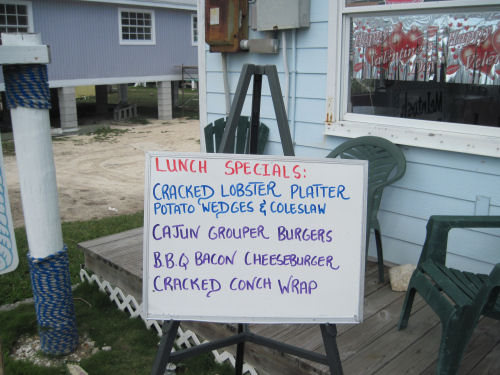 LUNCH SPECIALS:
CRACKED LOBSTER PLATTER
POTATO WEDGES & COLESLAW
CAJUN GROUPER BURGERS
B.B.Q BACON CHEESEBURGER
CRACKED CONCH WRAP